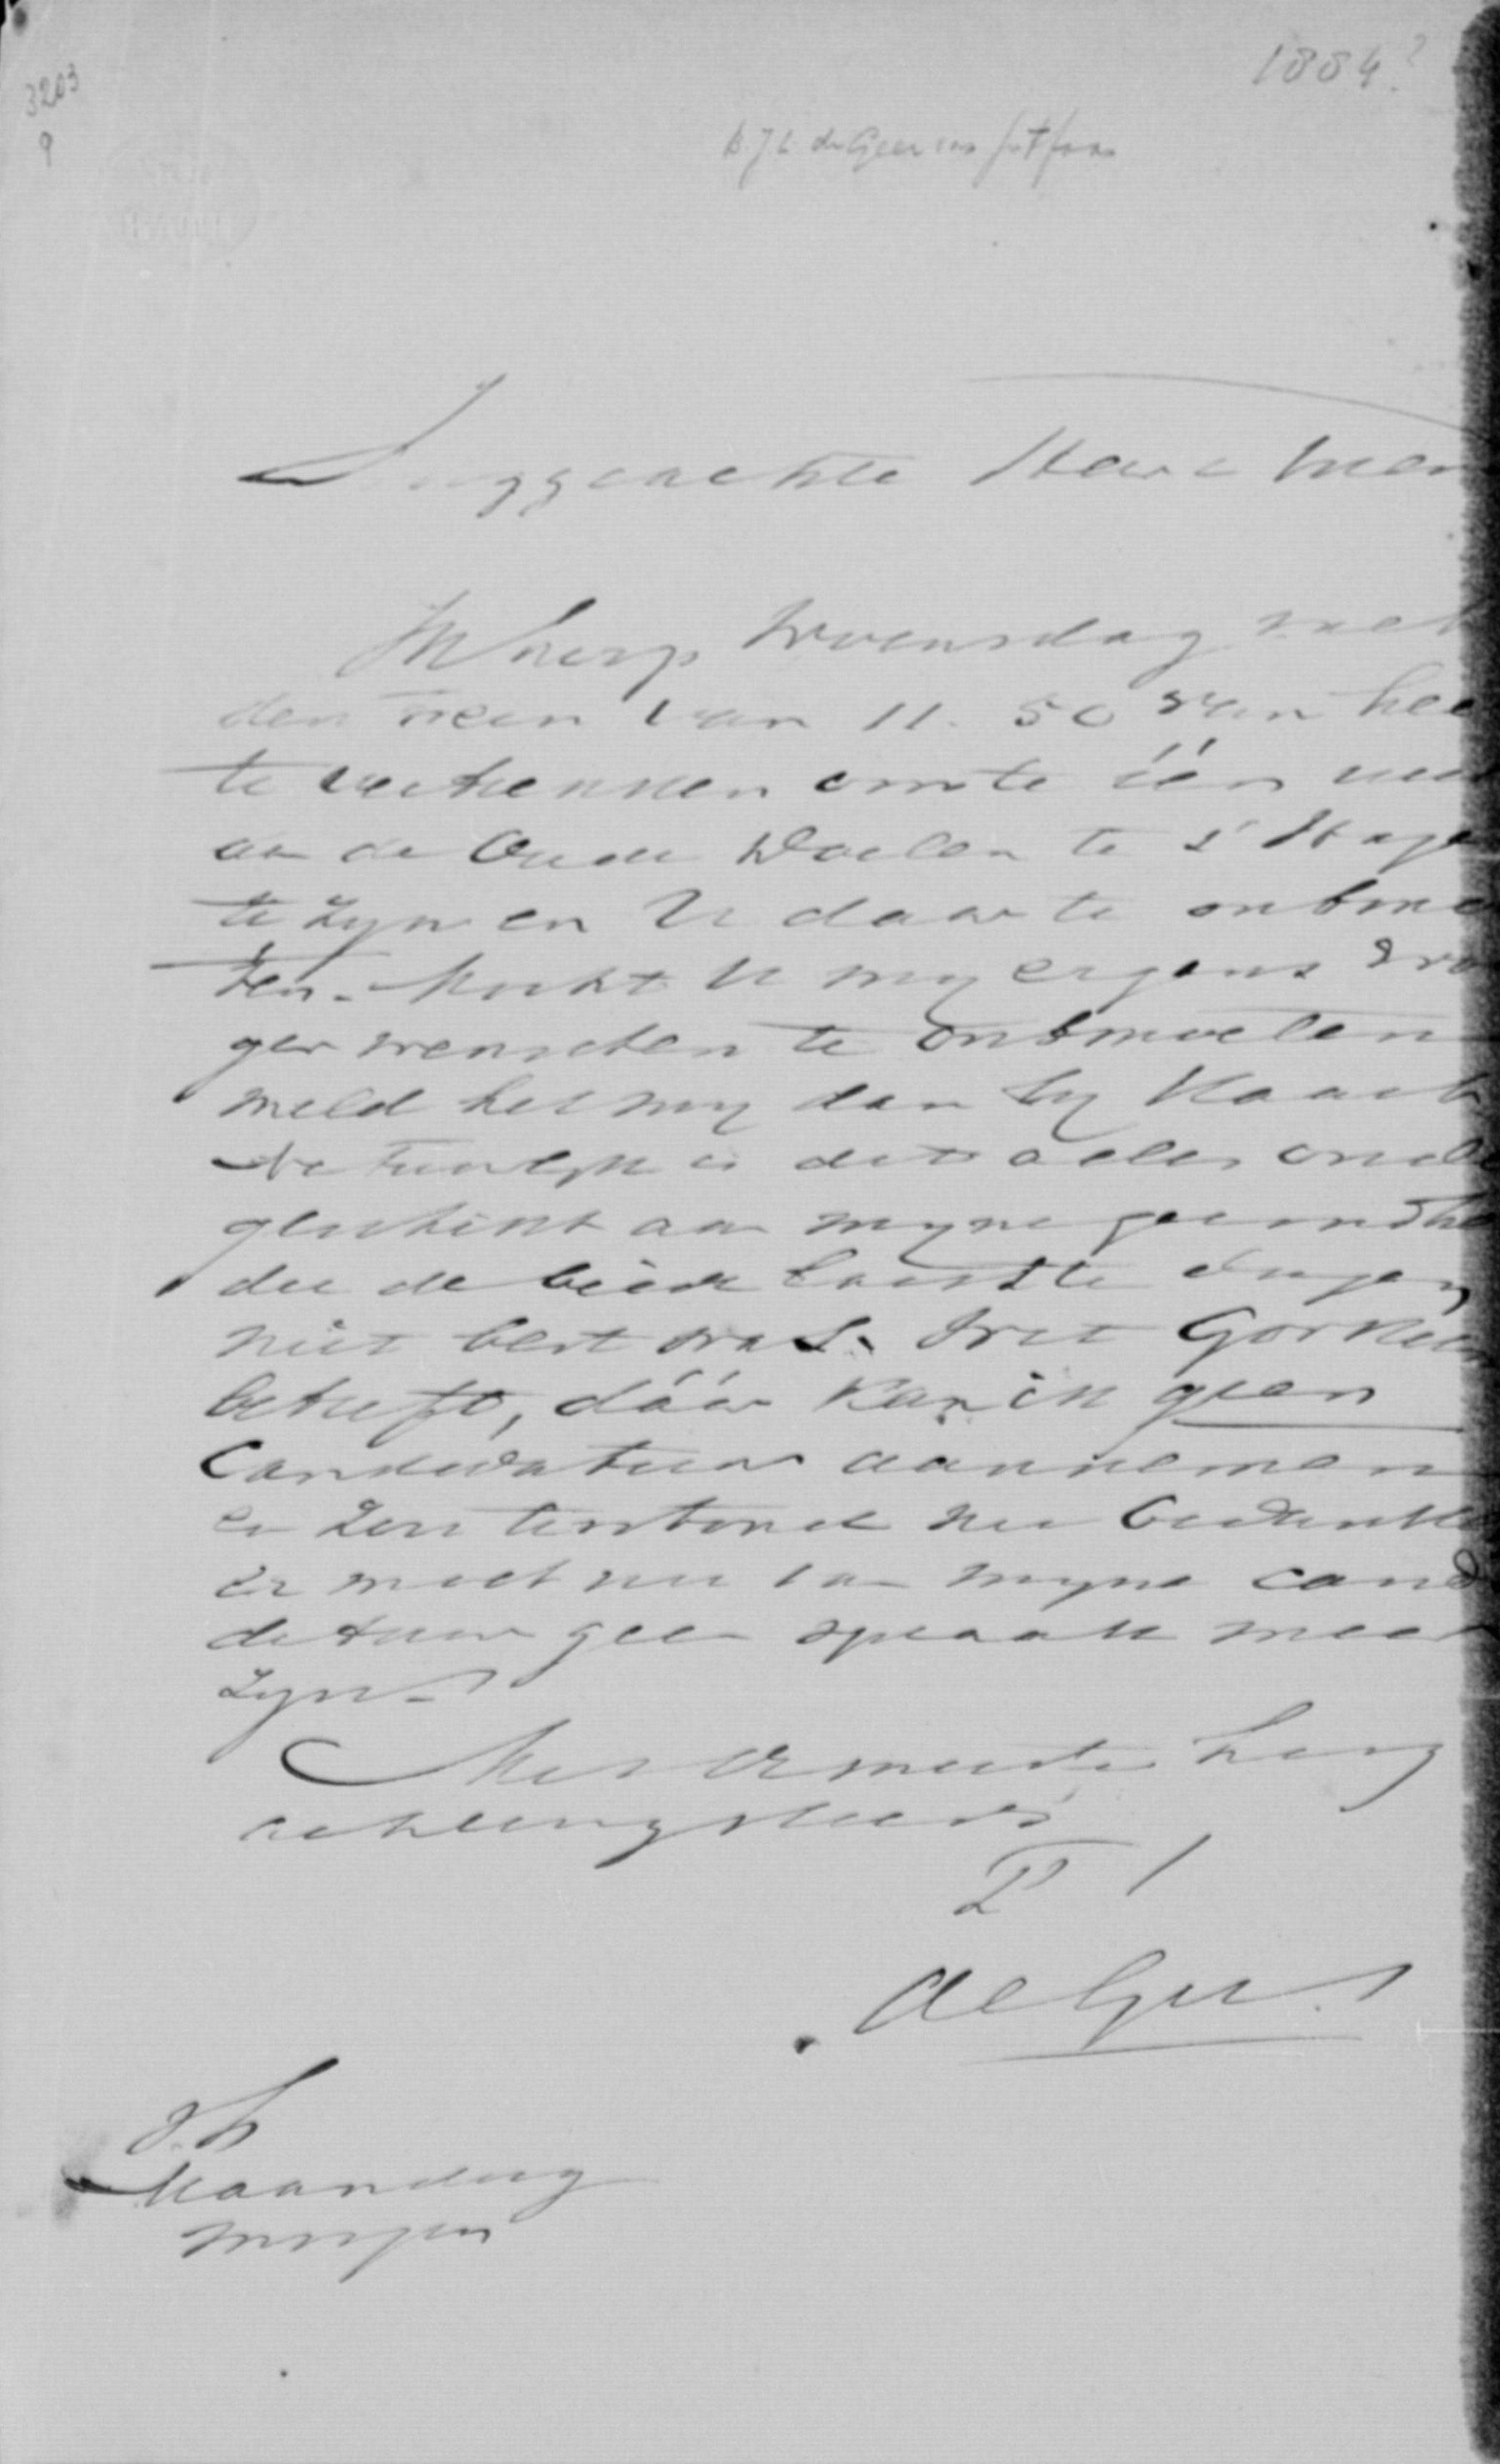 3203
9
1884?
B. J. L. de Geer van Jutfaas
Hooggeachte Heer en
Ik hoop Woensdag met
den trein van 11.50 van hier
te vertrekken om te één uur
in de Oude Doelen te s'Hage
te zyn en U daar te ontmoe
ten. Mocht U my ergens vroe
ger wenschen te ontmoeten
meld het my dan by Kaart
Natuurlyk is dit alles onder
geschikt aan myne gezondhe
die de beide laatste dagen
niet best was. Wat Gorkum
betreft, dáár kan ik geen
Candidatuur aannemen
en zou terstond nu bedanken
Er moet nu van myne candi
datuur geen spraak meer
zyn.
Met de meeste hoog
achting steeds
de Geer
Maandag
morgen